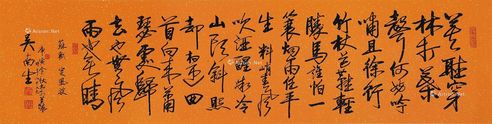 莫聽穿
林打葉
聲何妨吟
嘯且徐行
竹杖芒鞋輕
勝馬誰怕一
蓑烟雨任平
生料峭春風
吹酒醒微冷
山頭斜照
却相迎回
首向來蕭
瑟處歸
去也無風
雨也無晴
蘇軾 定風波